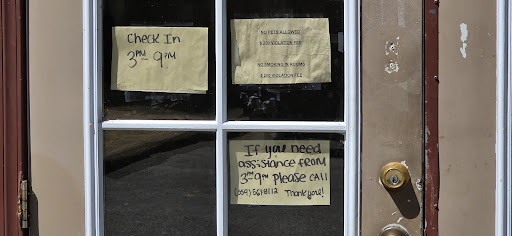 Check In
3PM- 9PM
NO PETS ALLOWED
$200 VIOLATION FEE
NO SMOKING IN ROOMS
$200 VIOLATION FEE
If you need
assistance FROM
3PM-9PM Please CALL
(559) 561-8112 Thank you!